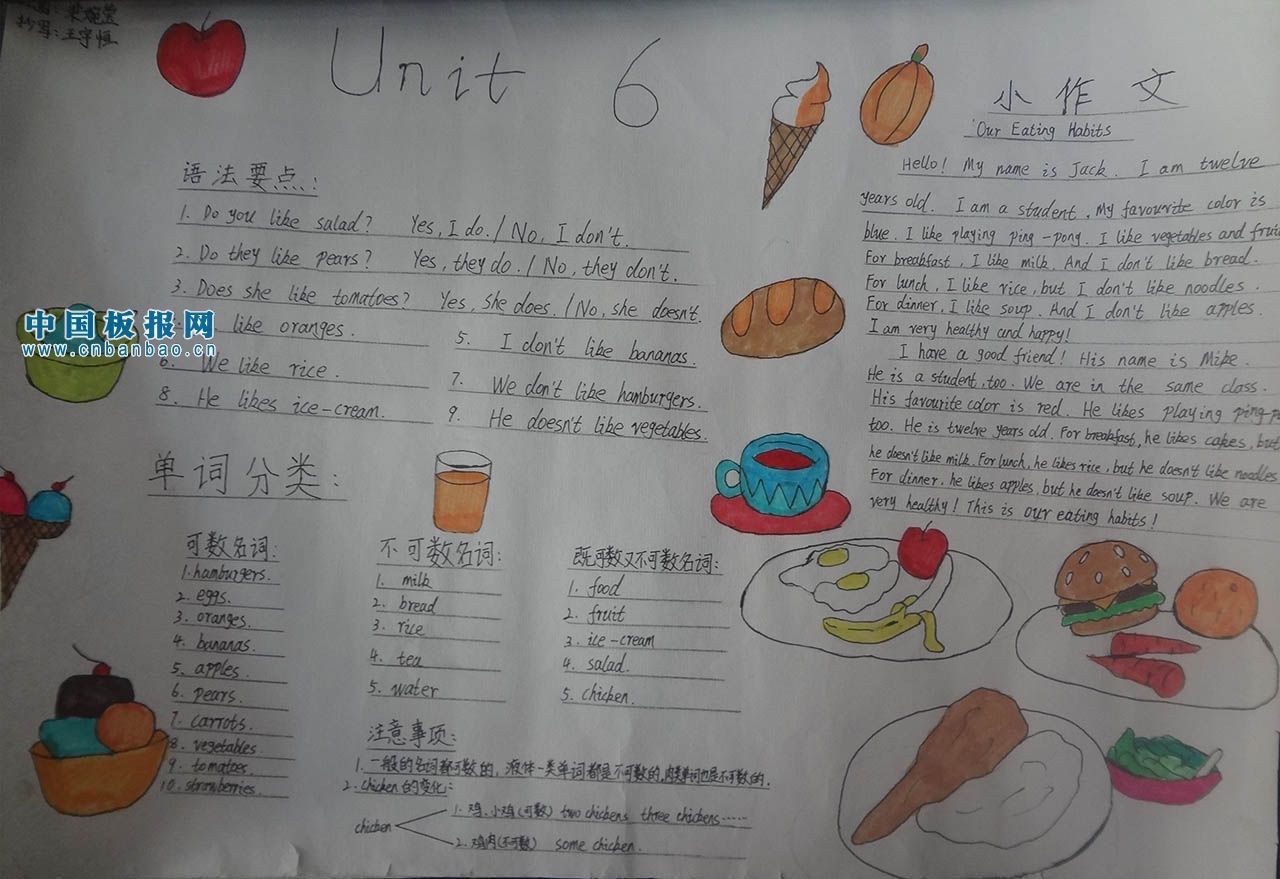 抄写:王宇恒
Unit 6
语法要点:
1. Do you like salad? Yes, I do. / No, I don't.
2. Do they like pears? Yes, they do. / No, they don't.
3. Does she like tomatoes? Yes, she does. / No, she doesn't.
like oranges.
5. I don't like bananas.
6. We like rice.
7. We don't like hamburgers.
8. He likes ice-cream.
9. He doesn't like vegetables.
中国板报网
www.cnbanbao.cn
单词分类:
可数名词:
1. hamburgers.
2. eggs.
3. oranges.
4. bananas.
5. apples.
6. pears.
7. carrots.
8. vegetables.
9. tomatoes.
10. strawberries.
不可数名词:
1. milk
2. bread
3. rice
4. tea
5. water
既可数又不可数名词:
1. food
2. fruit
3. ice-cream
4. salad.
5. chicken.
注意事项:
1. 一般的名词都可数的,液体一类单词都是不可数的,肉类单词也是不可数的.
2. chicken的变化:
chicken
1. 鸡、小鸡(可数) two chickens three chickens……
2. 鸡肉(不可数) some chicken.
小作文
Our Eating Habits
Hello! My name is Jack. I am twelve
years old. I am a student. My favourite color is
blue. I like playing ping-pong. I like vegetables and
For breakfast, I like milk. And I don't like bread.
For lunch, I like rice, but I don't like noodles.
For dinner, I like soup. And I don't like apples.
I am very healthy and happy!
I have a good friend! His name is Mike.
He is a student, too. We are in the same class.
His favourite color is red. He likes playing ping-p
too. He is twelve years old. For breakfast, he likes cakes, but
he doesn't like milk. For lunch, he likes rice, but he doesn't like noodles
For dinner, he likes apples, but he doesn't like soup. We are
very healthy! This is our eating habits!